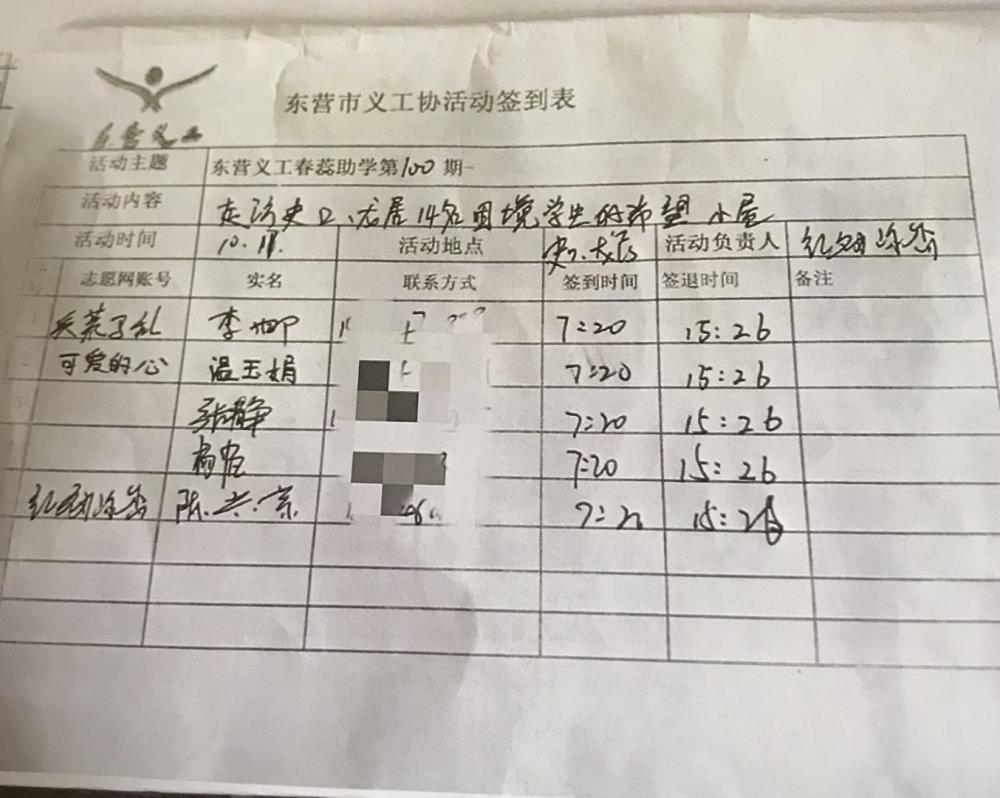 东营义工
东营市义工协活动签到表
活动主题 东营义工春蕊助学第100期
活动内容 走访史口、龙居14名困境学生的希望小屋
活动时间 10.18. 活动地点 史口、龙居 活动负责人
志愿网账号 实名 联系方式 签到时间 签退时间 备注
1 李卿 7:20 15:26
2 可爱的心 温玉娟 7:20 15:26
3 张静 7:20 15:26
7:20 15:26
陈兴京 7:20 15:26